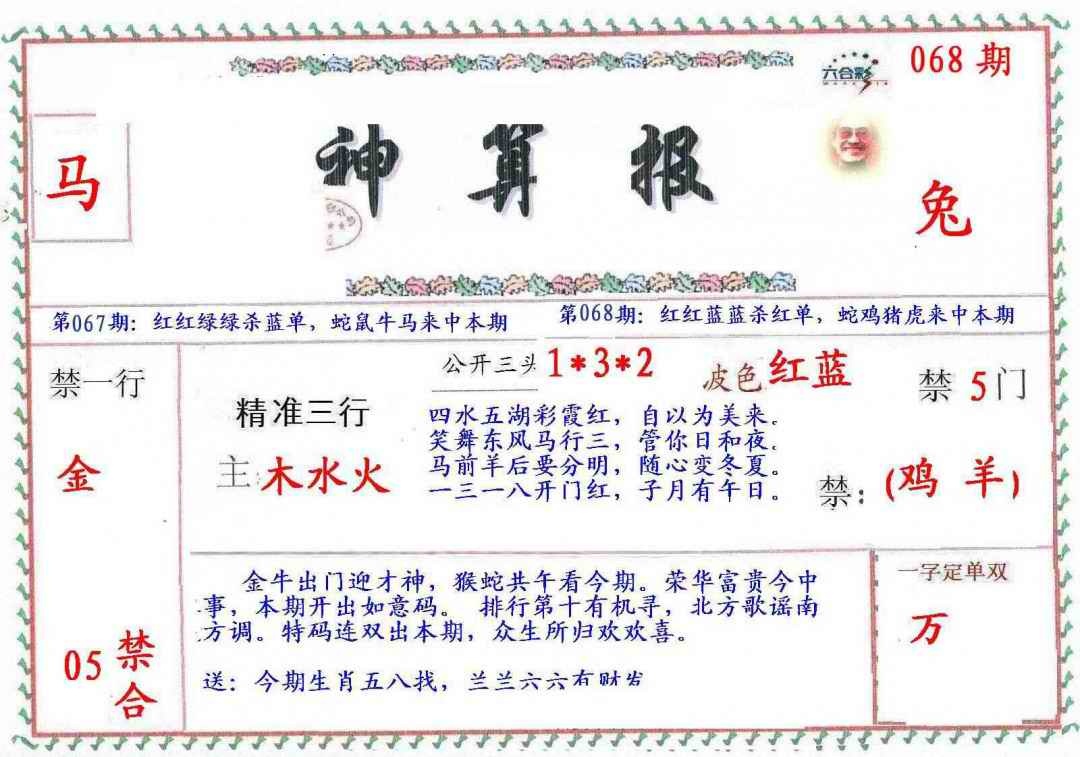 六合彩
068期
马
神算报
兔
第067期：红红绿绿杀蓝单，蛇鼠牛马来中本期
第068期：红红蓝蓝杀红单，蛇鸡猪虎来中本期
禁一行
金
05禁合
精准三行
主:木水火
公开三头1*3*2
波色红蓝
四水五湖彩霞红，自以为美来。
笑舞东风马行三，管你日和夜。
马前羊后要分明，随心变冬夏。
一三一八开门红，子月有午日。
禁5门
禁:(鸡 羊)
金牛出门迎才神，猴蛇共午看今期。荣华富贵今中
事，本期开出如意码。 排行第十有机寻，北方歌谣南
方调。特码连双出本期，众生所归欢欢喜。
送：今期生肖五八找，兰兰六六有财发
一字定单双
万